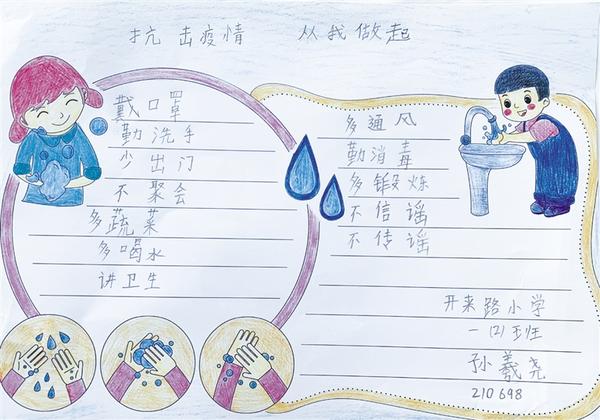 抗击疫情 从我做起
戴口罩
勤洗手
少出门
不聚会
多蔬菜
多喝水
讲卫生
多通风
勤消毒
多锻炼
不信谣
不传谣
开来路小学
一(2)班
孙羲尧
210698